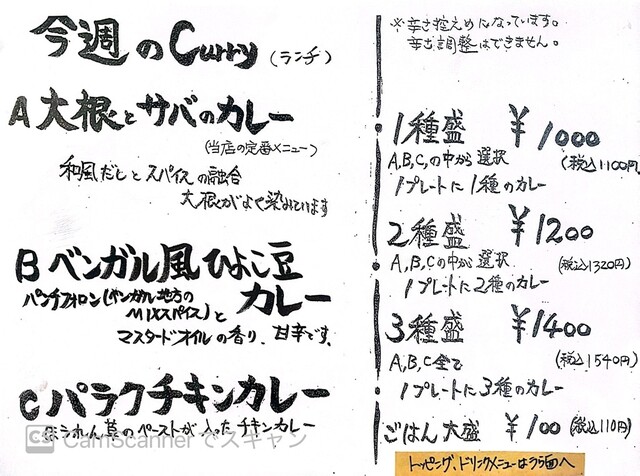 今週のCurry(ランチ)
A 大根とサバのカレー
(当店の定番メニュー)
和風だしとスパイスの融合
大根がよく染みています
B ベンガル風ひよこ豆
カレー
パンチフォロン(ベンガル地方の
MIXスパイス)と
マスタードオイルの香り、甘辛です。
C パラクチキンカレー
ほうれん草のペーストが入ったチキンカレー
CS CamScannerでスキャン
※辛さ控えめになっています。
辛さ調整はできません。
1種盛 ¥1000
A,B,C,の中から選択 (税込1100円)
1プレートに1種のカレー
2種盛 ¥1200
A,B,Cの中から選択 (税込1320円)
1プレートに2種のカレー
3種盛 ¥1400
A,B,C全て (税込1540円)
1プレートに3種のカレー
ごはん大盛 ¥100 (税込110円)
トッピングドリンクメニューはうら面へ